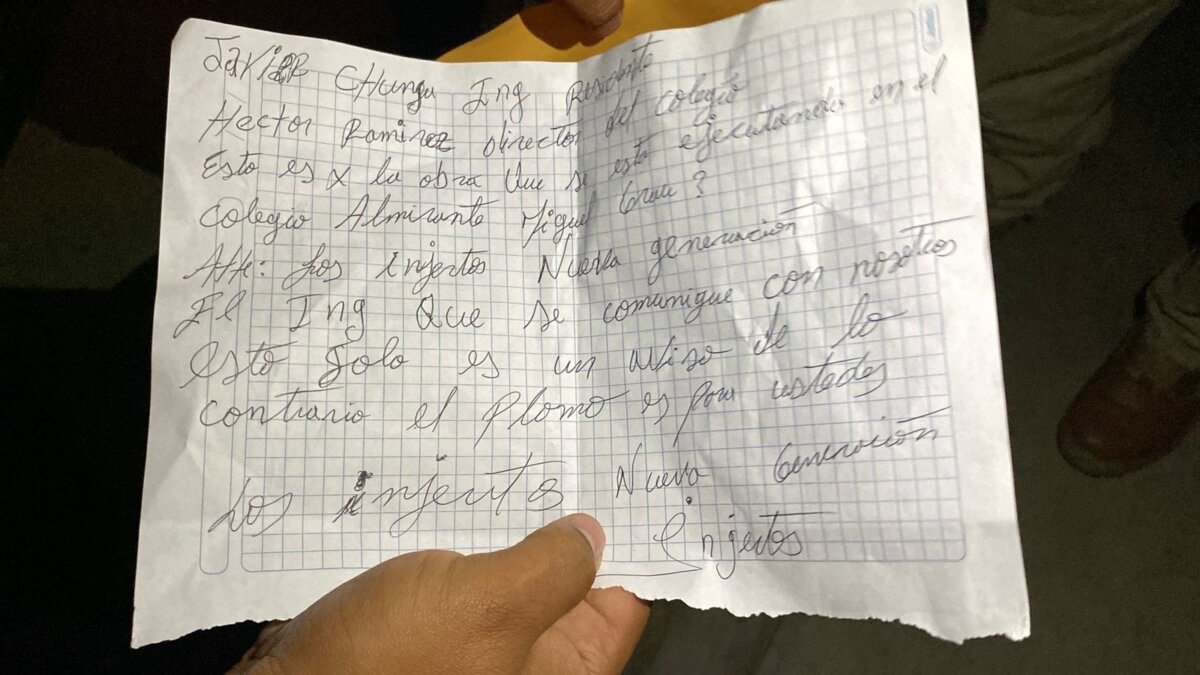 Javier Chunga Ing Residente
Hector Ramirez director del colegio
Esto es x la obra que se esta ejecutando en el
colegio Almirante Miguel Grau?
Att: Los injertos Nueva generación
El Ing Que se comunique con nosotros
esto solo es un aviso de lo
contrario el plomo es para ustedes
Los injertos Nueva Generación
injertos